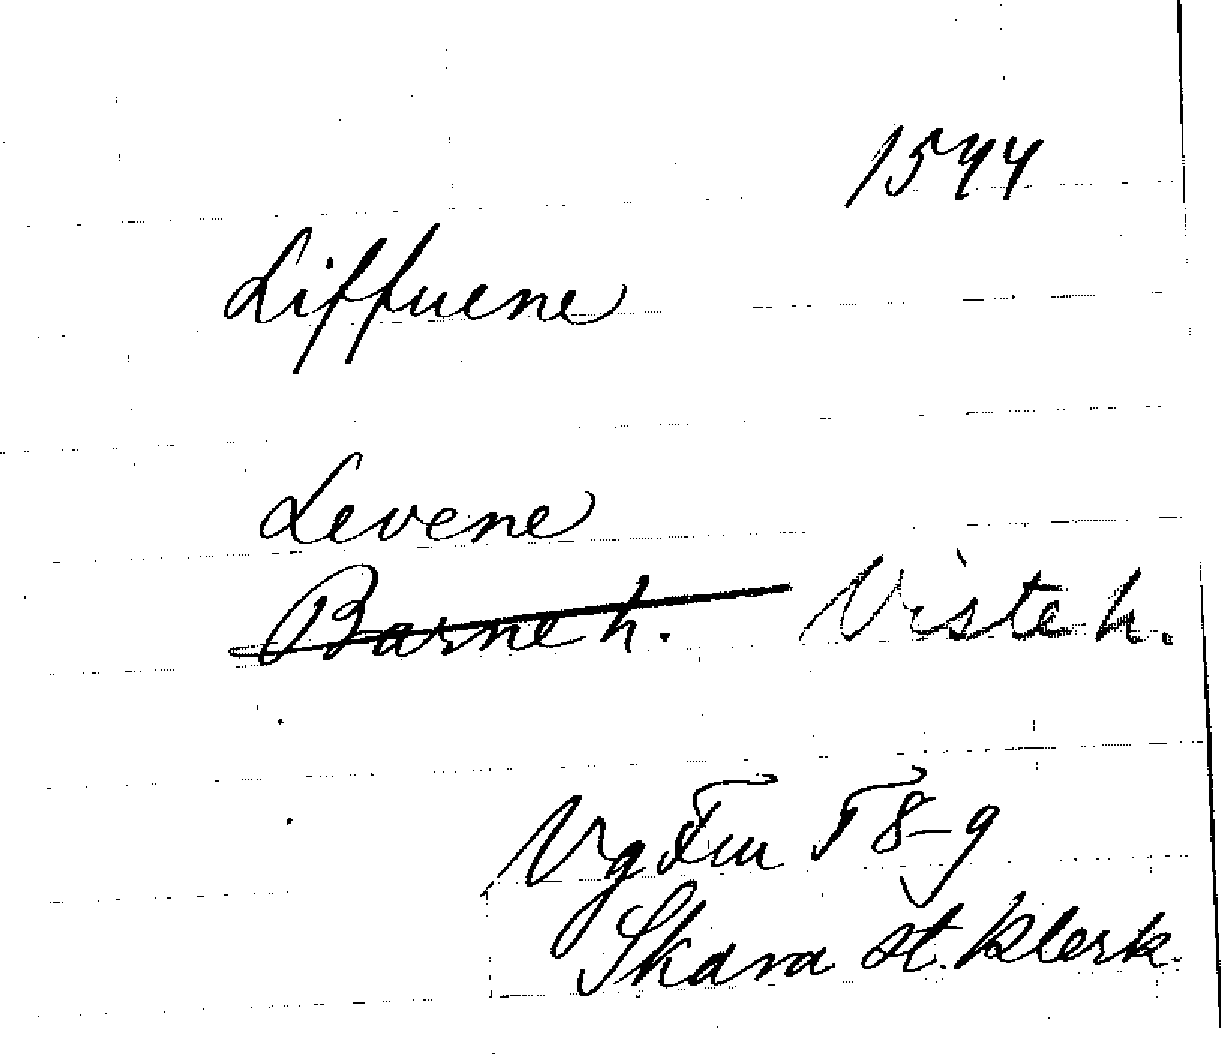 1544
Liffuene
Levene
Barne h. Viste h.
Vg Fru T 8-9
Skara st. klerk.